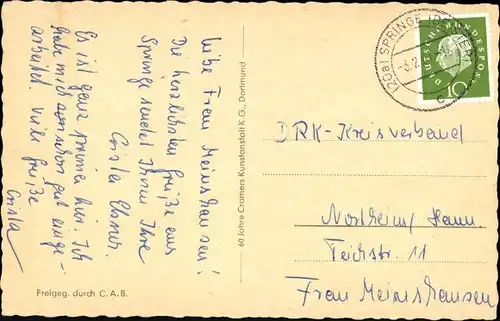 Liebe Frau Meinshausen!
Die herzlichsten Grüße aus
Springe sendet Ihnen Ihre
Crista Ebsner.
Es ist ganz prima hier. Ich
habe mich schon gut einge-
arbeitet. Viele Grüße
Crista
Freigeg. durch C.A.B.
60 Jahre Cramers Kunstanstalt K.G., Dortmund
(20a) SPRINGE
DEUTSCHE BUNDESPOST
10
DRK-Kreisverband
Northeim/Hann.
Teichstr. 11
Frau Meinshausen